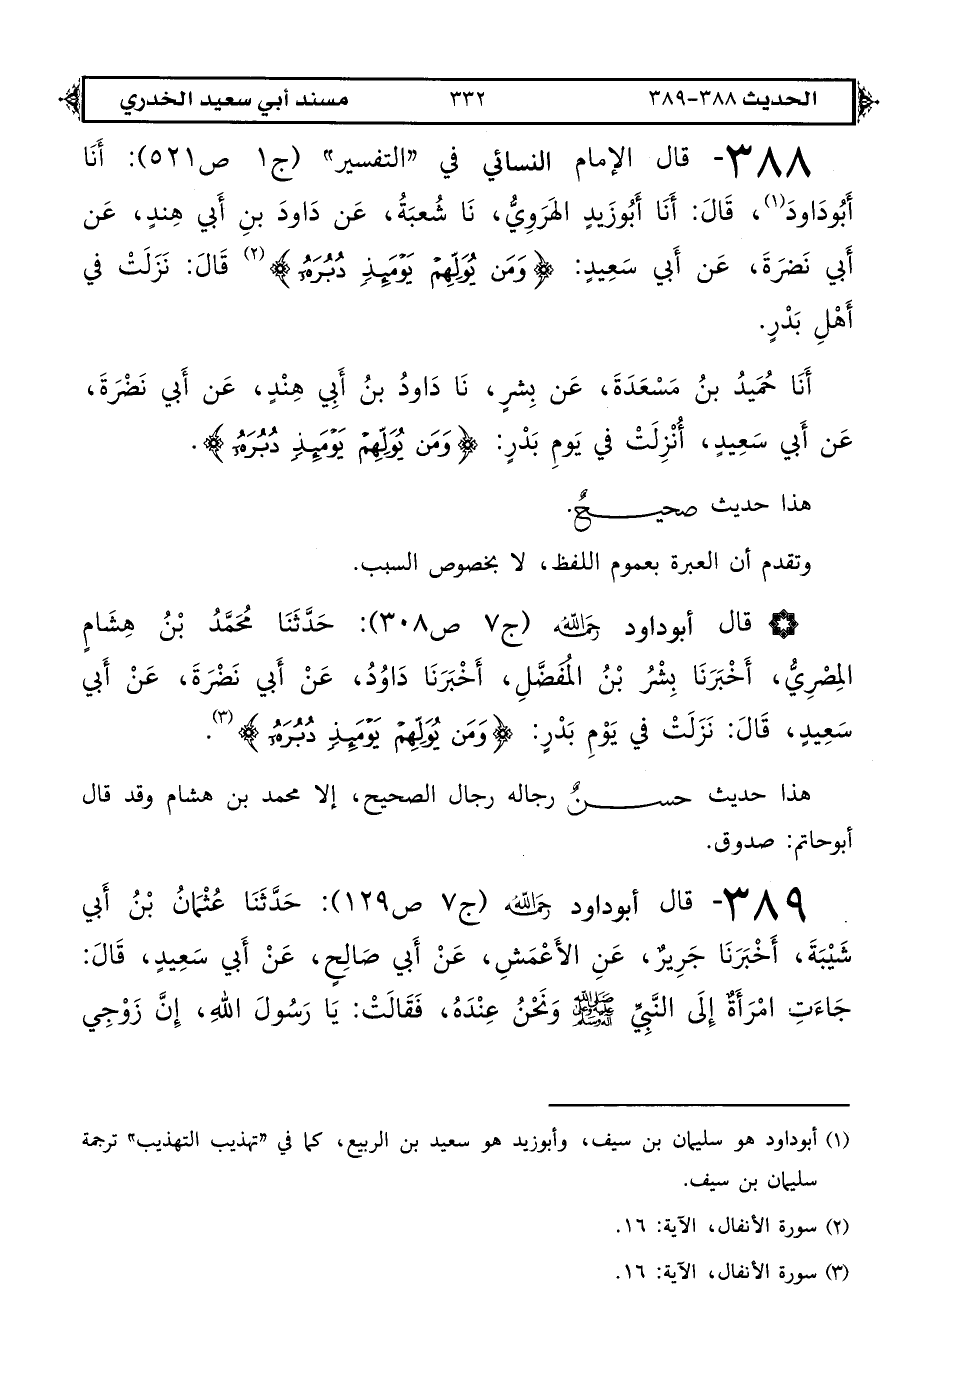 الحديث ٣٨٨-٣٨٩ ٣٣٢ مسند أبي سعيد الخدري
٣٨٨- قال الإمام النسائي في «التفسير» (ج١ ص٥٢١): أَنَا
أَبُودَاودَ(١)، قَالَ: أَنَا أَبُوزَيدٍ الهَرَوِيُّ، نَا شُعبَةُ، عَن دَاودَ بنِ أَبي هِندٍ، عَن
أَبي نَضرَةَ، عَن أَبي سَعِيدٍ: ﴿وَمَن يُوَلِّهِمْ يَوْمَئِذٍ دُبُرَهُۥ﴾(٢) قَالَ: نَزَلَتْ في
أَهْلِ بَدْرٍ.
أَنَا حُمَيدُ بنُ مَسْعَدَةَ، عَن بِشرٍ، نَا دَاودُ بنُ أَبِي هِنْدٍ، عَن أَبي نَضْرَةَ،
عَن أَبي سَعِيدٍ، أُنْزِلَتْ في يَومِ بَدْرٍ: ﴿وَمَن يُوَلِّهِمْ يَوْمَئِذٍ دُبُرَهُۥ﴾.
هذا حديث صحيـــــحٌ.
وتقدم أن العبرة بعموم اللفظ، لا بخصوص السبب.
۞ قال أبوداود رَحِمَهُ اللهُ (ج٧ ص٣٠٨): حَدَّثَنَا مُحَمَّدُ بْنُ هِشَامٍ
المِصْرِيُّ، أَخْبَرَنَا بِشْرُ بْنُ المُفَضَّلِ، أَخْبَرَنَا دَاوُدُ، عَنْ أَبي نَضْرَةَ، عَنْ أَبي
سَعِيدٍ، قَالَ: نَزَلَتْ في يَوْمِ بَدْرٍ: ﴿وَمَن يُوَلِّهِمْ يَوْمَئِذٍ دُبُرَهُۥ﴾(٣).
هذا حديث حســــنٌ رجاله رجال الصحيح، إلا محمد بن هشام وقد قال
أبوحاتم: صدوق.
٣٨٩- قال أبوداود رَحِمَهُ اللهُ (ج٧ ص١٢٩): حَدَّثَنَا عُثْمَانُ بْنُ أَبي
شَيْبَةَ، أَخْبَرَنَا جَرِيرٌ، عَنِ الأَعْمَشِ، عَنْ أَبي صَالِحٍ، عَنْ أَبي سَعِيدٍ، قَالَ:
جَاءَتِ امْرَأَةٌ إِلَى النَّبِيِّ ﷺ وَنَحْنُ عِنْدَهُ، فَقَالَتْ: يَا رَسُولَ اللهِ، إِنَّ زَوْجِي
(١) أبوداود هو سليمان بن سيف، وأبوزيد هو سعيد بن الربيع، كما في «تهذيب التهذيب» ترجمة
سليمان بن سيف.
(٢) سورة الأنفال، الآية: ١٦.
(٣) سورة الأنفال، الآية: ١٦.